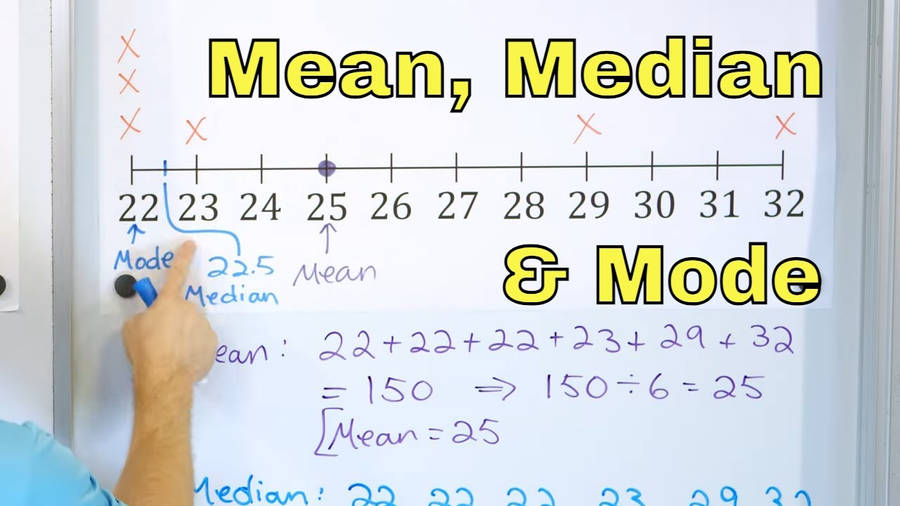 Mean, Median
X
X
X X X X
22 23 24 25 26 27 28 29 30 31 32
Mode 22.5 Mean
Median
& Mode
ean: 22+22+22+23+29+32
= 150 ⇒ 150÷6 = 25
[Mean = 25
Median: 22 22 22 23 29 32